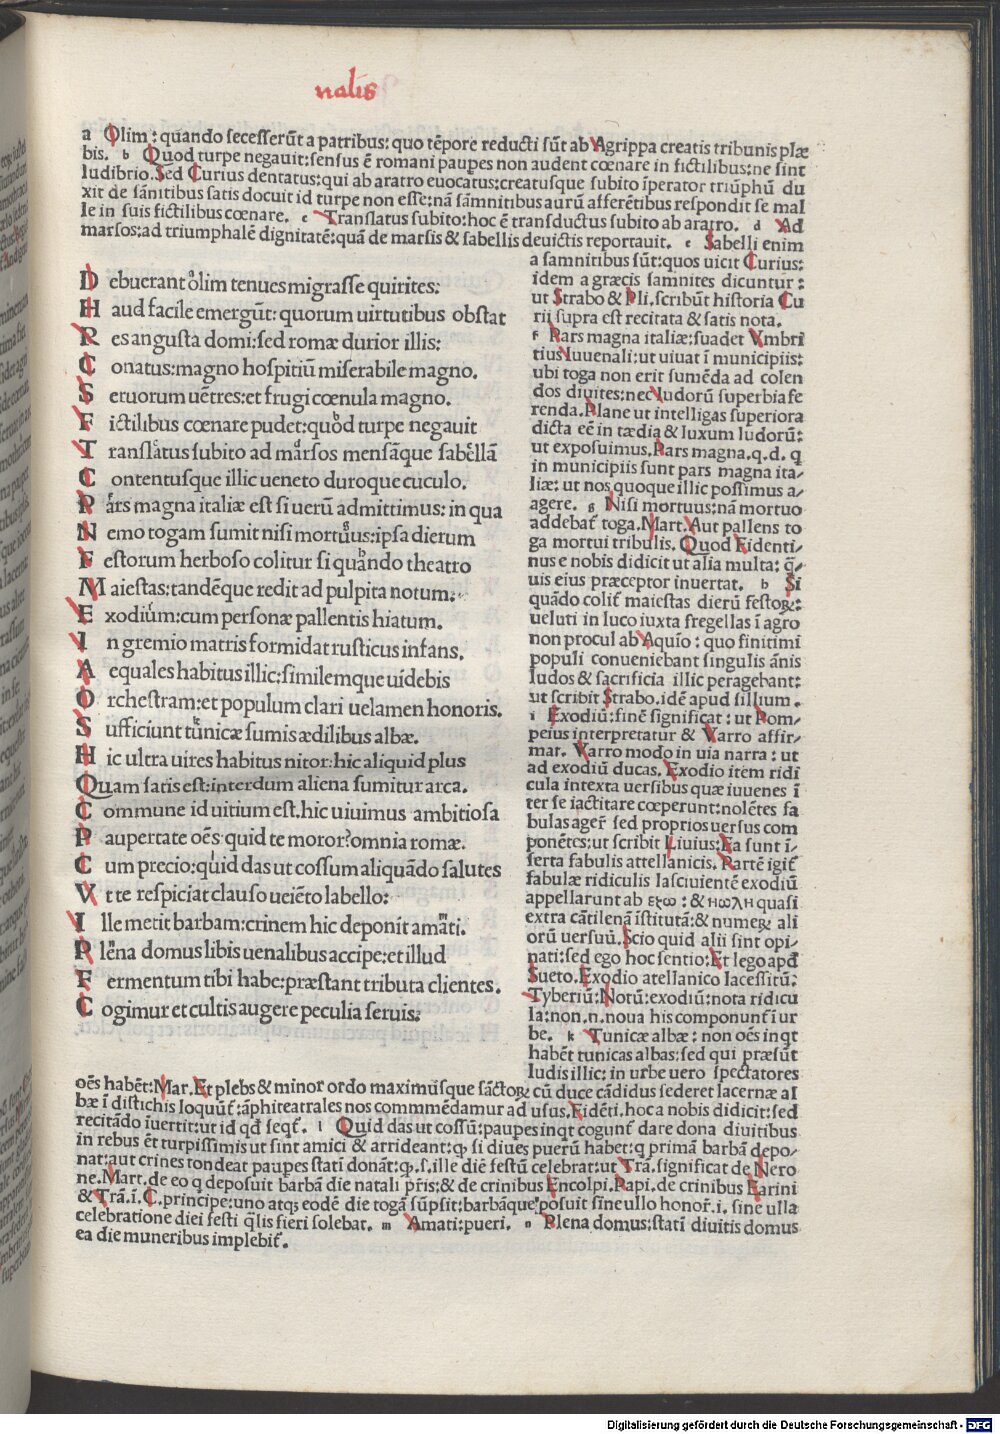 nalis
a Olim: quando ſeceſſerūt a patribus: quo tēpore reducti ſūt ab Agrippa creatis tribunis plæ
bis. b Quod turpe negauit: ſenſus ē romani paupes non audent cœnare in fictilibus: ne ſint
ludibrio. Sed Curius dentatus: qui ab aratro euocatus: creatuſque ſubito īperator triūphū du
xit de ſānitibus ſatis docuit id turpe non eſſe: nā ſāmnitibus aurū afferētibus reſpondit ſe mal
le in ſuis fictilibus cœnare. c Tranſlatus ſubito: hoc ē tranſductus ſubito ab aratro. d Ad
marſos: ad triumphalē dignitatē: quā de marſis & ſabellis deuictis reportauit. e Sabelli enim
D ebuerant olim tenues migraſſe quirites:
H aud facile emergūt: quorum uirtutibus obſtat
R es anguſta domi: ſed romæ durior illis:
C onatus: magno hoſpitiū miſerabile magno.
S eruorum uētres: et frugi cœnula magno.
F ictilibus cœnare pudet: quod turpe negauit
T ranſlatus ſubito ad marſos menſāque ſabellā
C ontentuſque illic ueneto duroque cuculo.
P ars magna italiæ eſt ſi uerū admittimus: in qua
N emo togam ſumit niſi mortuus: ipſa dierum
F eſtorum herboſo colitur ſi quando theatro
M aieſtas: tandēque redit ad pulpita notum.
E xodium: cum perſonæ pallentis hiatum.
I n gremio matris formidat ruſticus infans.
A equales habitus illic: ſimilemque uidebis
O rcheſtram: et populum clari uelamen honoris.
S ufficiunt tunicæ ſumis ædilibus albæ.
H ic ultra uires habitus nitor: hic aliquid plus
Quam ſatis eſt: interdum aliena ſumitur arca.
C ommune id uitium eſt. hic uiuimus ambitioſa
P aupertate oēs: quid te moror? omnia romæ.
C um precio: quid das ut coſſum aliquādo ſalutes
V t te reſpiciat clauſo ueiēto labello:
I lle metit barbam: crinem hic deponit amati.
P lena domus libis uenalibus accipe: et illud
F ermentum tibi habe: præſtant tributa clientes.
C ogimur et cultis augere peculia ſeruis:
a ſamnitibus ſūt: quos uicit Curius:
idem a græcis ſamnites dicuntur:
ut Strabo & Pli. ſcribūt hiſtoria Cu
rii ſupra eſt recitata & ſatis nota.
f Pars magna italiæ: ſuadet Vmbri
tius Iuuenali: ut uiuat ī municipiis:
ubi toga non erit ſumēda ad colen
dos diuites: nec ludorū ſuperbia fe
renda. Plane ut intelligas ſuperiora
dicta eē in tædia & luxum ludorū:
ut expoſuimus. Pars magna. q. d. q
in municipiis ſunt pars magna ita
liæ: ut nos quoque illic poſſimus a-
agere. g Niſi mortuus: nā mortuo
addebať toga. Mart. Aut pallens to
ga mortui tribulis. Quod Fidenti-
nus e nobis didicit ut alia multa: q̄-
uis eius præceptor inuertat. h Si
quādo coliť maieſtas dierū feſtoꝝ:
ueluti in luco iuxta fregellas ī agro
non procul ab Aquīo: quo finitimi
populi conueniebant ſingulis ānis
ludos & ſacrificia illic peragebant:
ut ſcribit Strabo. idē apud ſillium.
i Exodiū: finē ſignificat: ut Pom-
peius interpretatur & Varro affir-
mat. Varro modo in uia narra: ut
ad exodiū ducas. Exodio item ridi
cula intexta uerſibus quæ iuuenes ī
ter ſe iactitare cœperunt: nolētes fa
bulas ager̄ ſed proprios uerſus com
ponētes: ut ſcribit Liuius: Ea ſunt ī-
ſerta fabulis attellanicis. Partē igiť
fabulæ ridiculis laſciuientē exodiū
appellarunt ab εξω: & ηωλη quaſi
extra cātilenā īſtitutā: & numeꝝ ali
orū uerſuū. Scio quid alii ſint opi-
nati: ſed ego hoc ſentio: Et lego apd̄
Sueto. Exodio atellanico laceſſitū:
Tyberiū: Notū: exodiū: nota ridicu
la: non. n. noua his componunť ī ur
be. k Tunicæ albæ: non oēs inqt
habēt tunicas albas: ſed qui præſūt
ludis illic: in urbe uero ſpectatores
oēs habēt: Mar. Et plebs & minor ordo maximuſque ſāctoꝝ cū duce cādidus ſederet lacernæ al
bæ ī diſtichis loquūť: āphiteatrales nos commmēdamur ad uſus. Fidēti. hoc a nobis didicit: ſed
recitādo īuertit: ut id qd̄ ſeqť. l Quid das ut coſſū: paupes inqt cogunť dare dona diuitibus
in rebus ēt turpiſſimis ut ſint amici & arrideant: ꝙ ſi diues puerū habet: q primā barbā depo-
nat: aut crines tondeat paupes ſtatī donāt: ꝙ. ſ. ille diē feſtū celebrat: ut Trā. ſignificat de Nero
ne. Mart. de eo q depoſuit barbā die natali pr̄is: & de crinibus Encolpi. Papi. de crinibus Earini
& Trā. ī. C. principe: uno atqꝫ eodē die togā ſūpſit: barbāque poſuit ſine ullo honor̄. i. ſine ulla
celebratione diei feſti q̄lis fieri ſolebat. m Amati: pueri. n Plena domus: ſtatī diuitis domus
ea die muneribus implebiť.
Digitalisierung gefördert durch die Deutsche Forschungsgemeinschaft - DFG